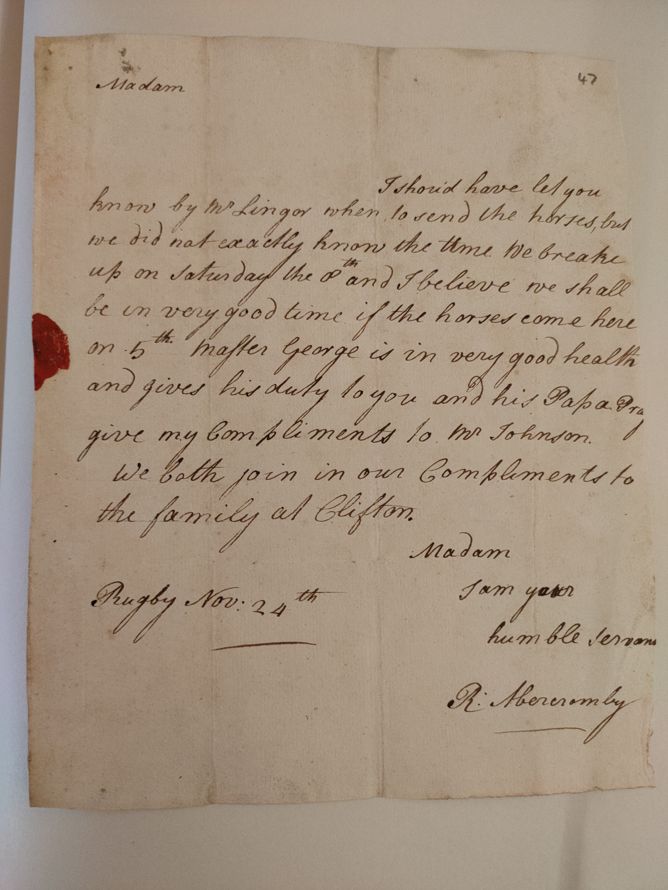 47
Madam
I shou'd have let you
know by Mr Lingor when to send the horses, but
we did not exactly know the time We breake
up on Saturday the 8th and I believe we shall
be in very good time if the horses come here
on 5th. Master George is in very good health
and gives his duty to you and his Papa. Pray
give my Compliments to Mr Johnson.
We both join in our Compliments to
the family at Clifton.
Madam
I am your
humble servant
Rugby Nov: 24th
R: Abercromby